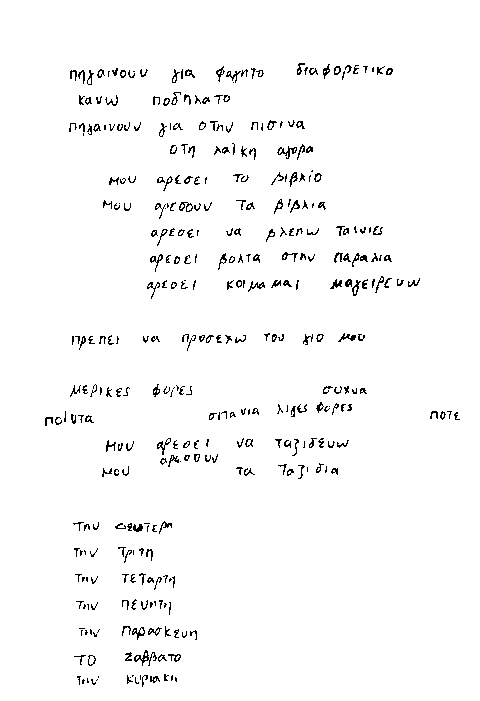 πηγαινουν για φαγητο διαφορετικο
κανω ποδηλατο
πηγαινουν για στην πισινα
στη λαικη αγορα
μου αρεσει το βιβλίο
μου αρεσουν τα βιβλια
αρεσει να βλεπω ταινιες
αρεσει βολτα στην παραλια
αρεσει κοιμαμαι μαγειρευω
πρεπει να προσεχω τον γιο μου
μερικες φορες συχνα
παντα σπανια λιγες φορες ποτε
μου αρεσει να ταξιδευω
μου αρεσουν τα ταξιδια
την Δευτερη
την τριτη
την τεταρτη
την πεμπτη
την παρασκευη
το Σαββατο
την κυριακη